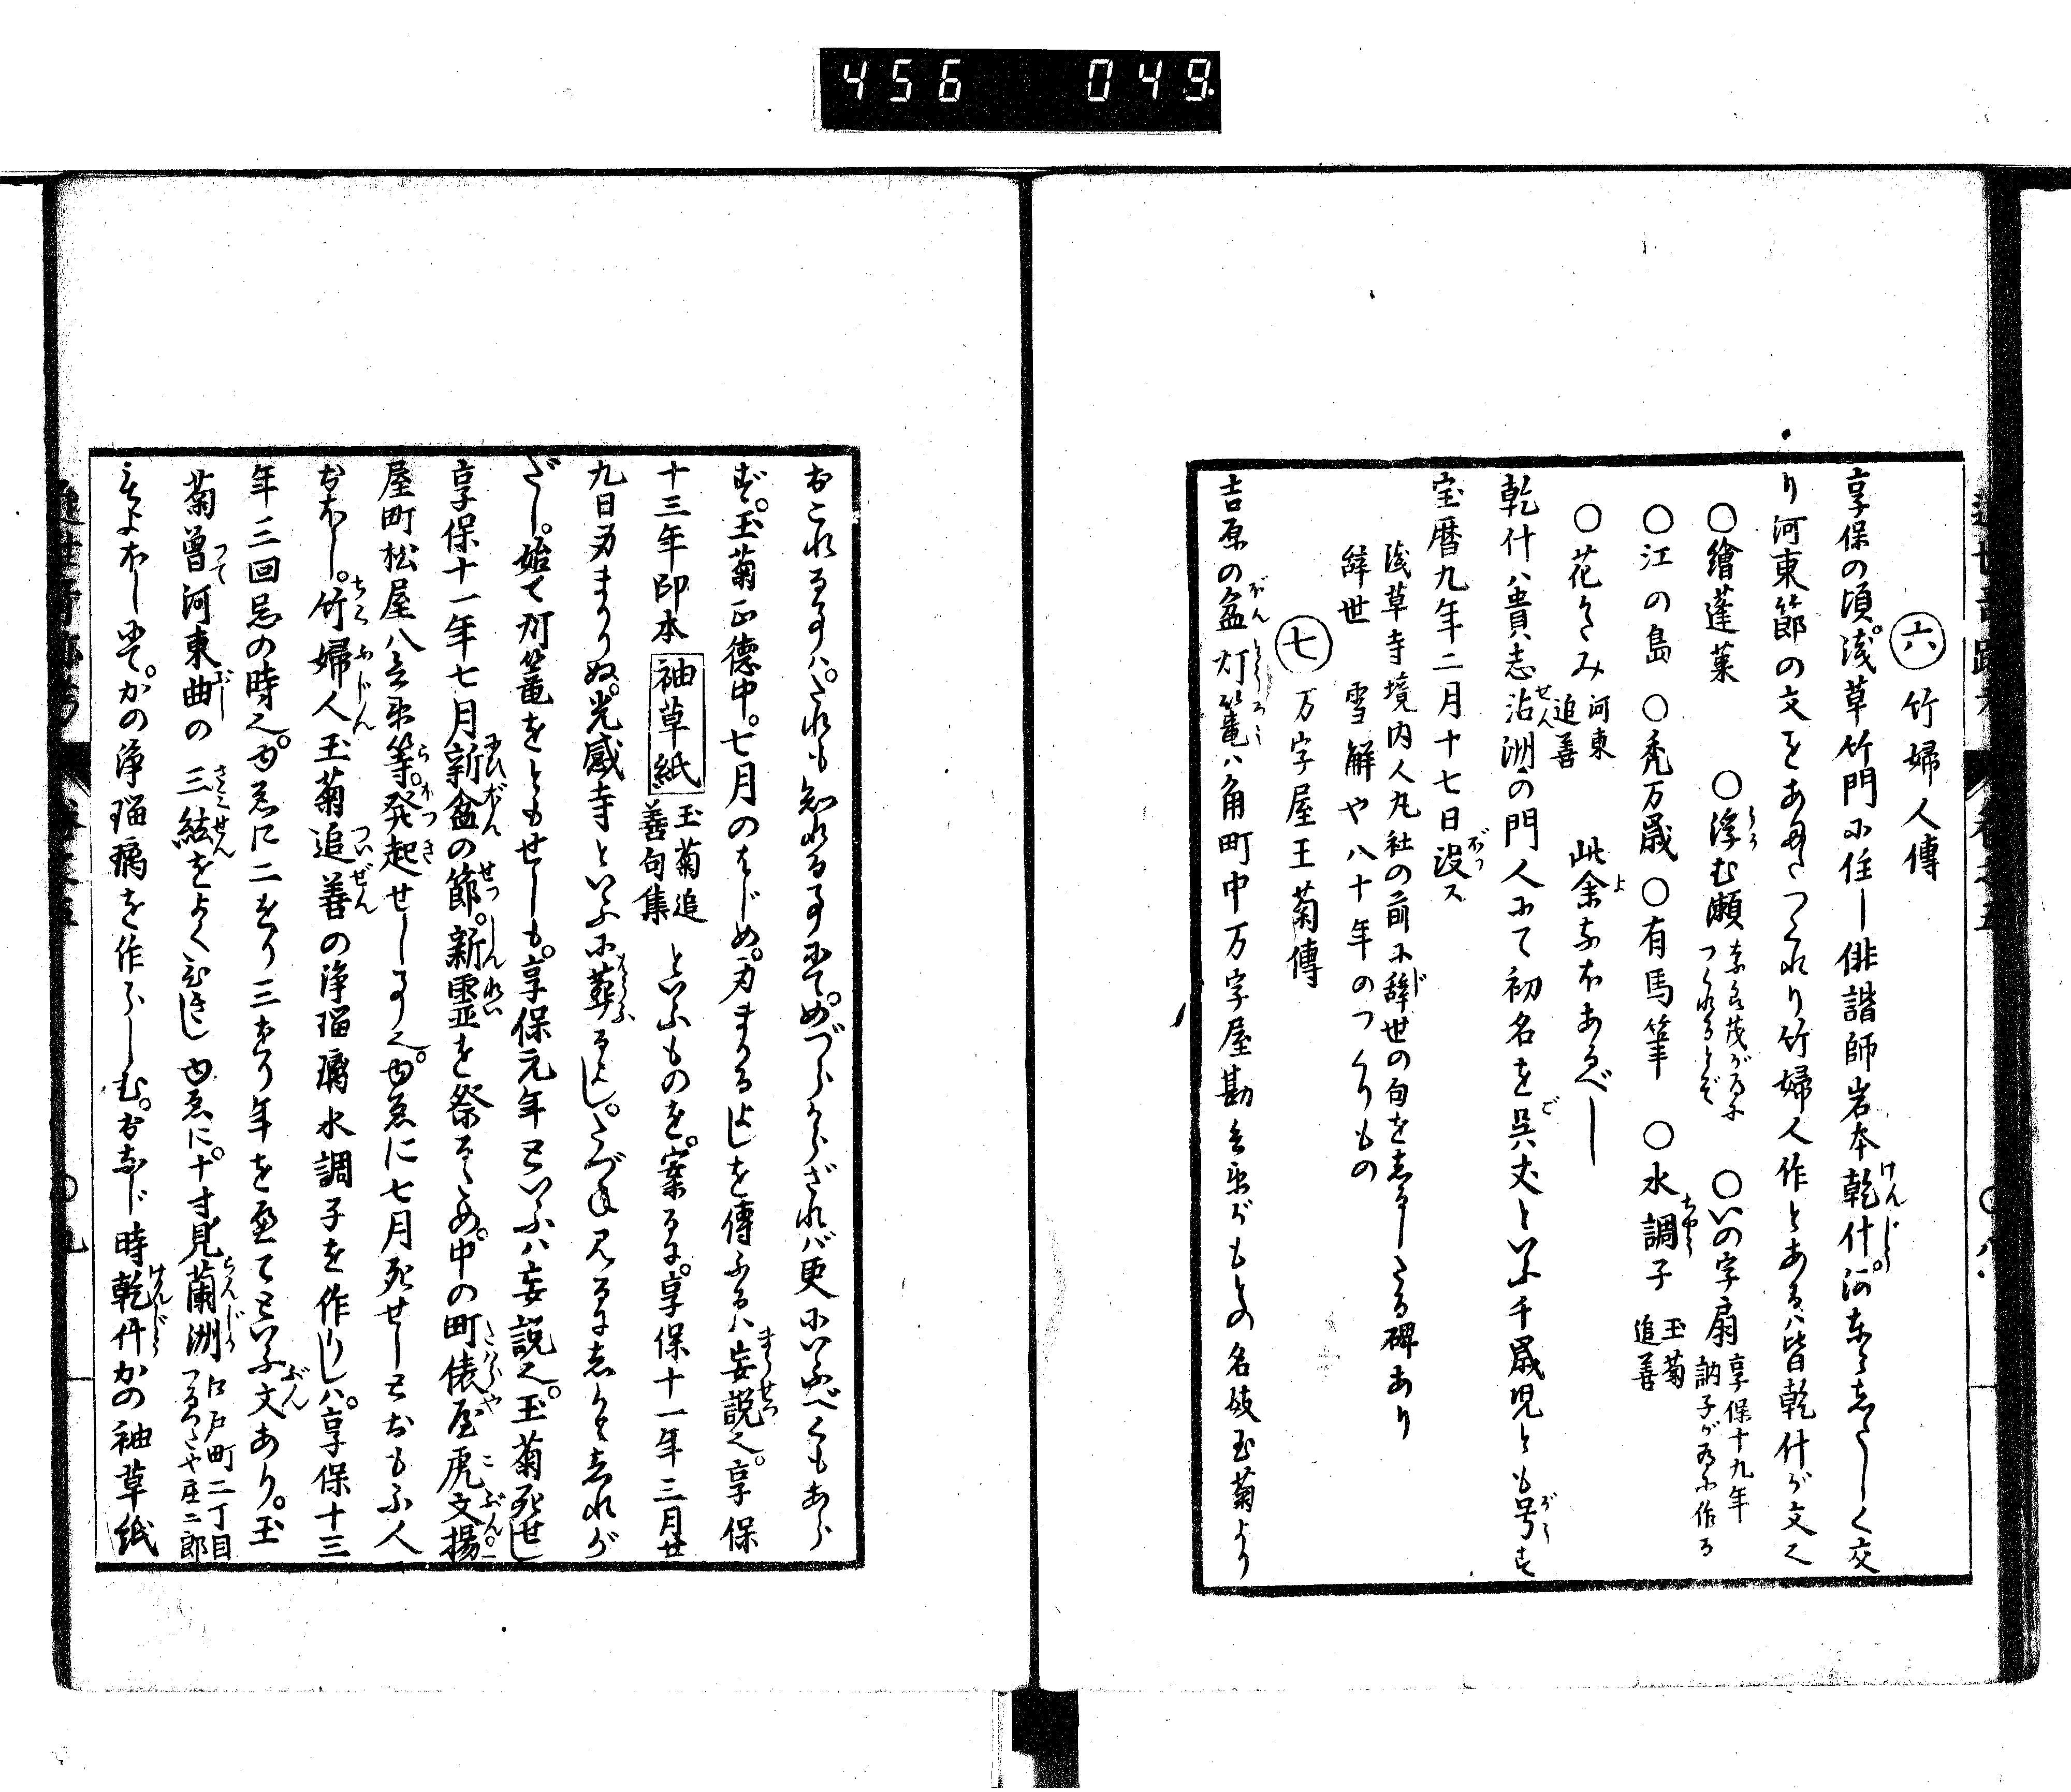 456 049
六 竹婦人傳
享保の頃。浅草竹門に住し俳諧師岩本乾什。河東としたしく交
り河東節の文をあまたつくれり竹婦人作とあるハ皆乾什が文也
○繪蓬莱 ○浮む瀬 奈良茂が為に つくれるとぞ ○いの字扇 享保十九年 訥子が為に作る
○江の島 ○禿万歳 ○有馬筆 ○水調子 玉菊 追善
○花くらみ 河東 追善 此余なほあるべし
乾什ハ貴志沾洲の門人にて初名を呉丈といふ千歳児とも号す
宝暦九年二月十七日没ス
浅草寺境内人丸社の前に辞世の句をしるしたる碑あり
辞世 雪解や八十年のつくりもの
七 万字屋玉菊傳
吉原の盆灯篭ハ角町中万字屋勘兵衛がもとの名妓玉菊より
おこれる事ハ。たれも知れる事にて。めづらからざれバ更にいふべくもあら
ず。玉菊正徳中。七月のはじめ。身まかるよしを傳ふるハ妄説也。享保
十三年印本 袖草紙 玉菊追 善句集 といふものを。案るに。享保十一年三月廿
九日身まかりぬ。光感寺といふに葬るよし。たづね見るにしかとしれが
たし。始て灯篭をともせしも。享保元年といふハ妄説也。玉菊死せし
享保十一年七月新盆の節。新霊を祭るため。中の町俵屋虎文揚
屋町松屋八兵衛等。発起せし事也。ゆゑに七月死せしとおもふ人
おほし。竹婦人玉菊追善の浄瑠璃水調子を作りしハ。享保十三
年三回忌の時也。ゆゑに二をり三をり年を重てといふ文あり。玉
菊曽河東曲の三絃をよくひきしゆゑに。十寸見蘭洲 江戸町二丁目 つるつたや庄二郎
きよおしにて。かの浄瑠璃を作らしむ。おなじ時乾什かの袖草紙